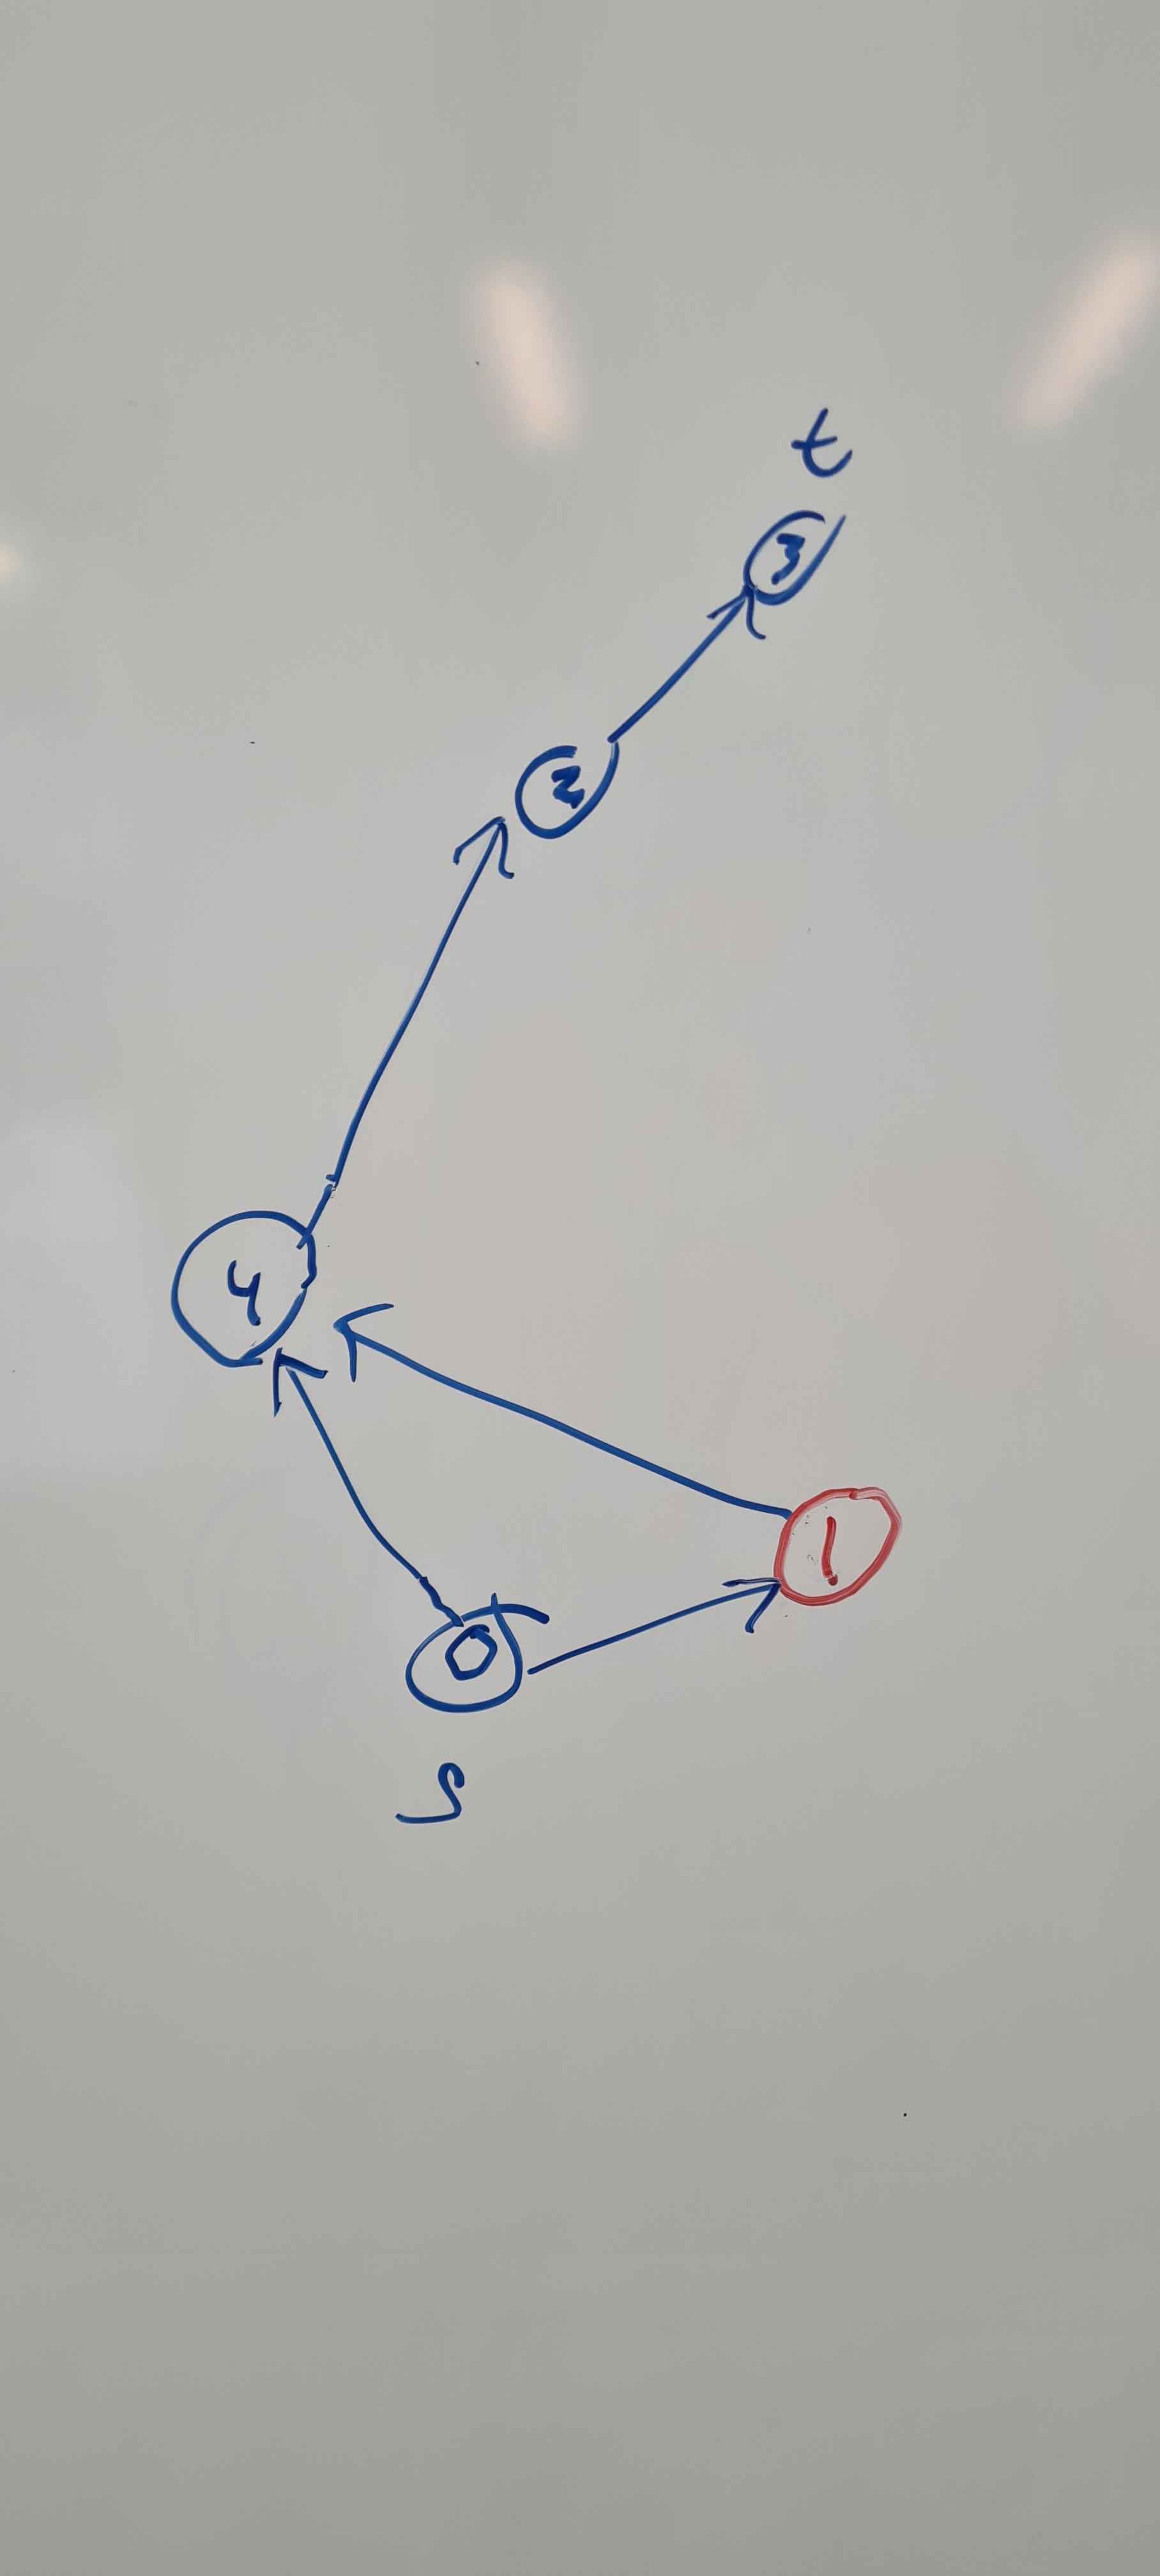 t
3
2
4
1
0
S